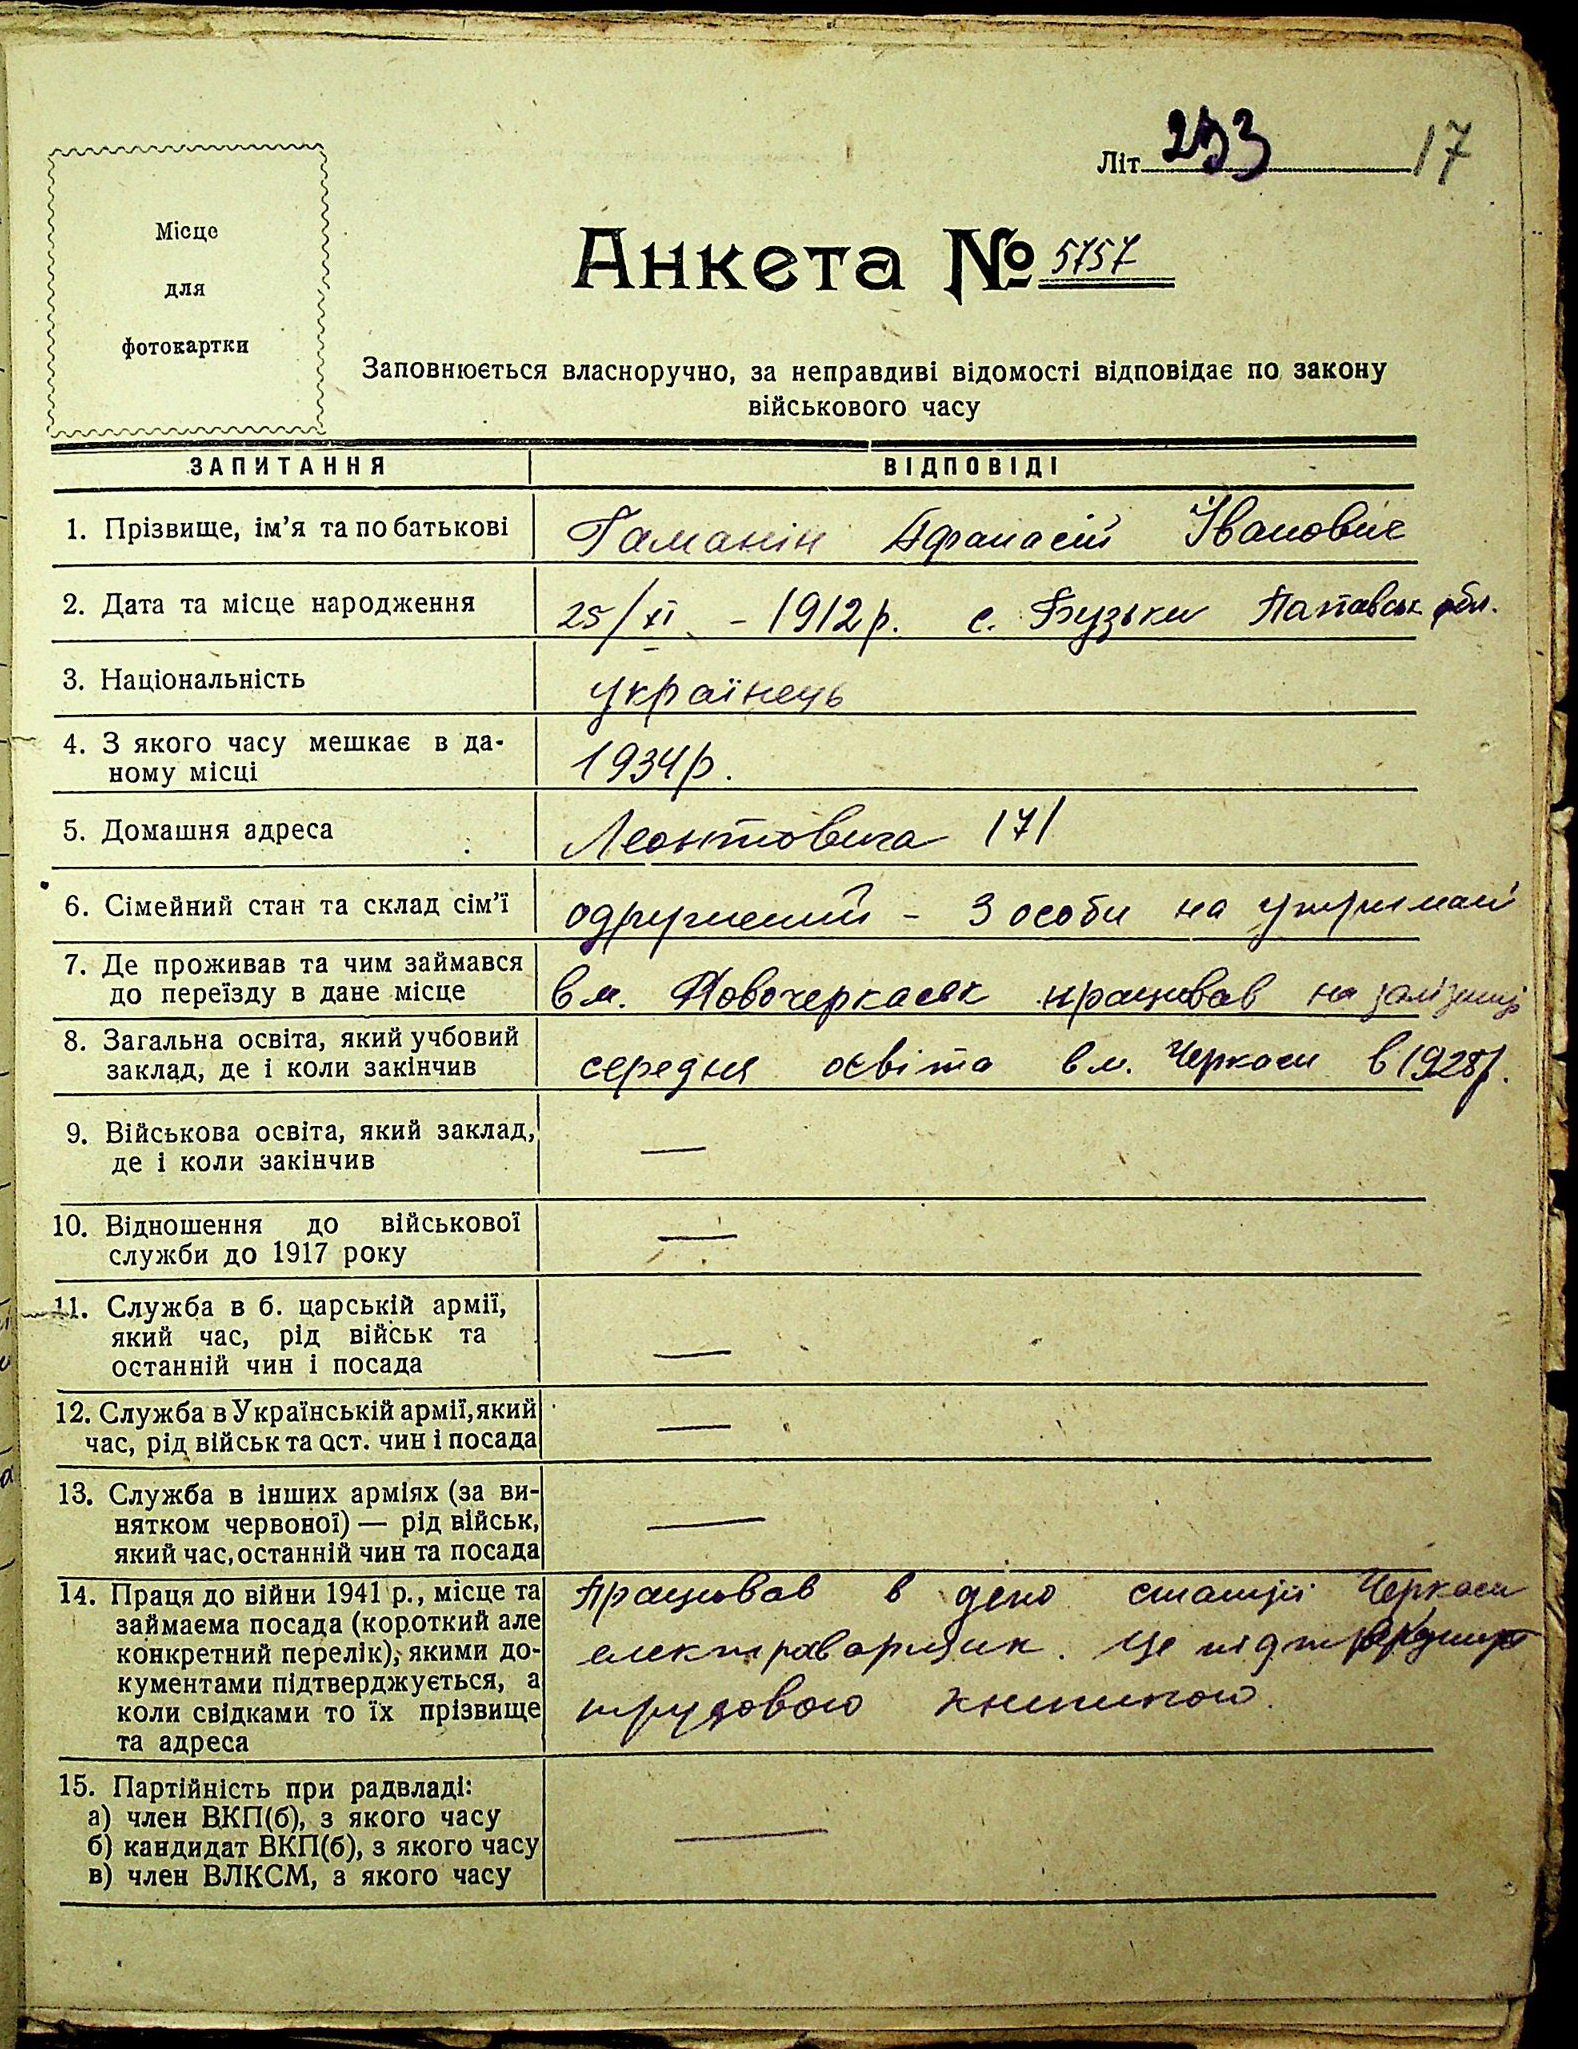 Літ. 293 17
Місце
для
фотокартки
Анкета № 5757
Заповнюється власноручно, за неправдиві відомості відповідає по закону
військового часу
ЗАПИТАННЯ ВІДПОВІДІ
1. Прізвище, ім'я та по батькові Гаманін Афанасій Іванович
2. Дата та місце народження 25/XI - 1912 р. с. Бузьки обл.
3. Національність українець
4. З якого часу мешкає в да- 1934 р.
ному місці
5. Домашня адреса Леонтовича 171
6. Сімейний стан та склад сім'ї одружений - 3 особи на
7. Де проживав та чим займався
до переїзду в дане місце в м. Новочеркаськ працював на залізниці
8. Загальна освіта, який учбовий
заклад, де і коли закінчив середня освіта в м. Черкаси в 1928 р.
9. Військова освіта, який заклад, —
де і коли закінчив
10. Відношення до військової —
служби до 1917 року
11. Служба в б. царській армії,
який час, рід військ та —
останній чин і посада
12. Служба в Українській армії, який —
час, рід військ та ост. чин і посада
13. Служба в інших арміях (за ви-
нятком червоної) — рід військ, —
який час, останній чин та посада
14. Праця до війни 1941 р., місце та Працював в депо станції Черкаси
займаєма посада (короткий але
конкретний перелік), якими до- електроварщик. Це
кументами підтверджується, а
коли свідками то їх прізвище трудовою книжкою.
та адреса
15. Партійність при радвладі:
а) член ВКП(б), з якого часу —
б) кандидат ВКП(б), з якого часу
в) член ВЛКСМ, з якого часу